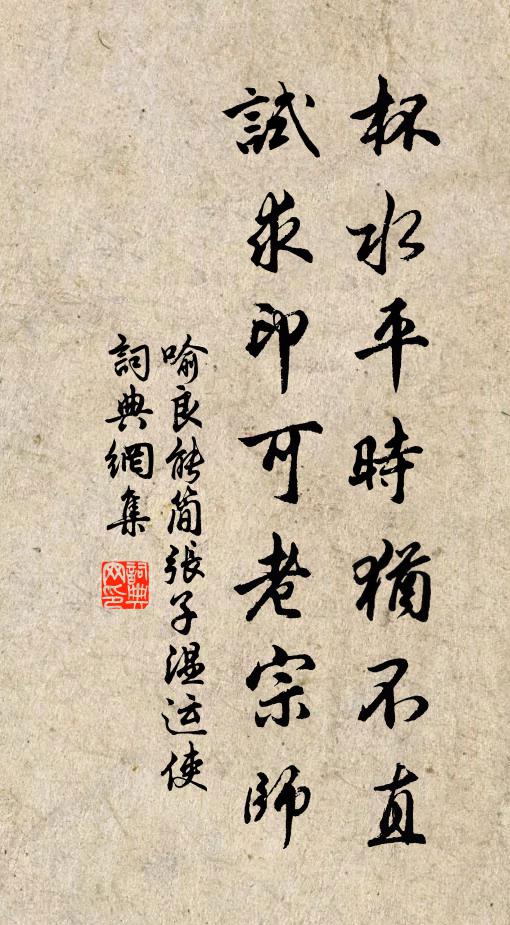 杯水平時猶不直
試求印可老宗師
喻良能簡張子溫运使
詞典網集
詞典網印